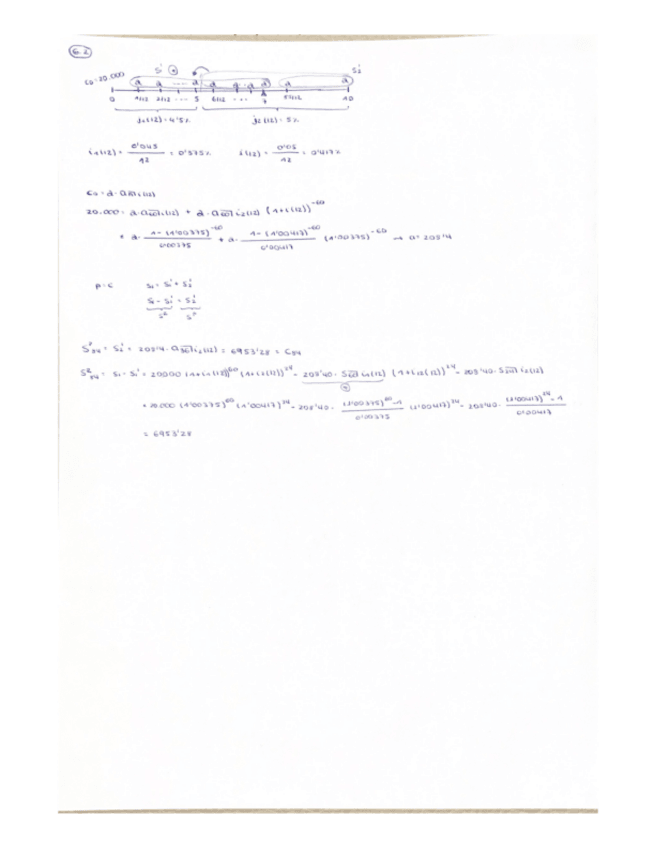 6.2
S₁' ⊛ S₂'
C₀=20.000 a a .... a a a a a a a
0 1/12 2/12 ... 5 6/12 ... 7 10
j₁(12) = 4'5% j₂(12) = 5%
i₁(12) = 0'045/12 = 0'375% i(12) = 0'05/12 = 0'417%
20.000 = a · a60̅| i₁(12) + a · a60̅| i₂(12) (1+i(12))^-60
= a · 1-(1'00375)^-60/0'00375 + a · 1-(1'00417)^-60/0'00417 (1'00375)^-60 → a = 205'4
S₁ = S₁' + S₂'
S₁ - S₁' = S₂'
S₈₄ = S₂' = 205'4 · a36̅| i₂(12) = 6953'28 = C₈₄
S₈₄ = S₁ - S₁' = 20000 (1+i₁(12))^60 (1+i₂(12))^24 - 205'40 · S60̅| i₁(12) (1+i₂(12))^24 - 205'40 · S24̅| i₂(12)
= 20.000 (1'00375)^60 (1'00417)^24 - 205'40 · (1'00375)^60 - 1/0'00375 (1'00417)^24 - 205'40 · (1'00417)^24 - 1/0'00417
= 6953'28